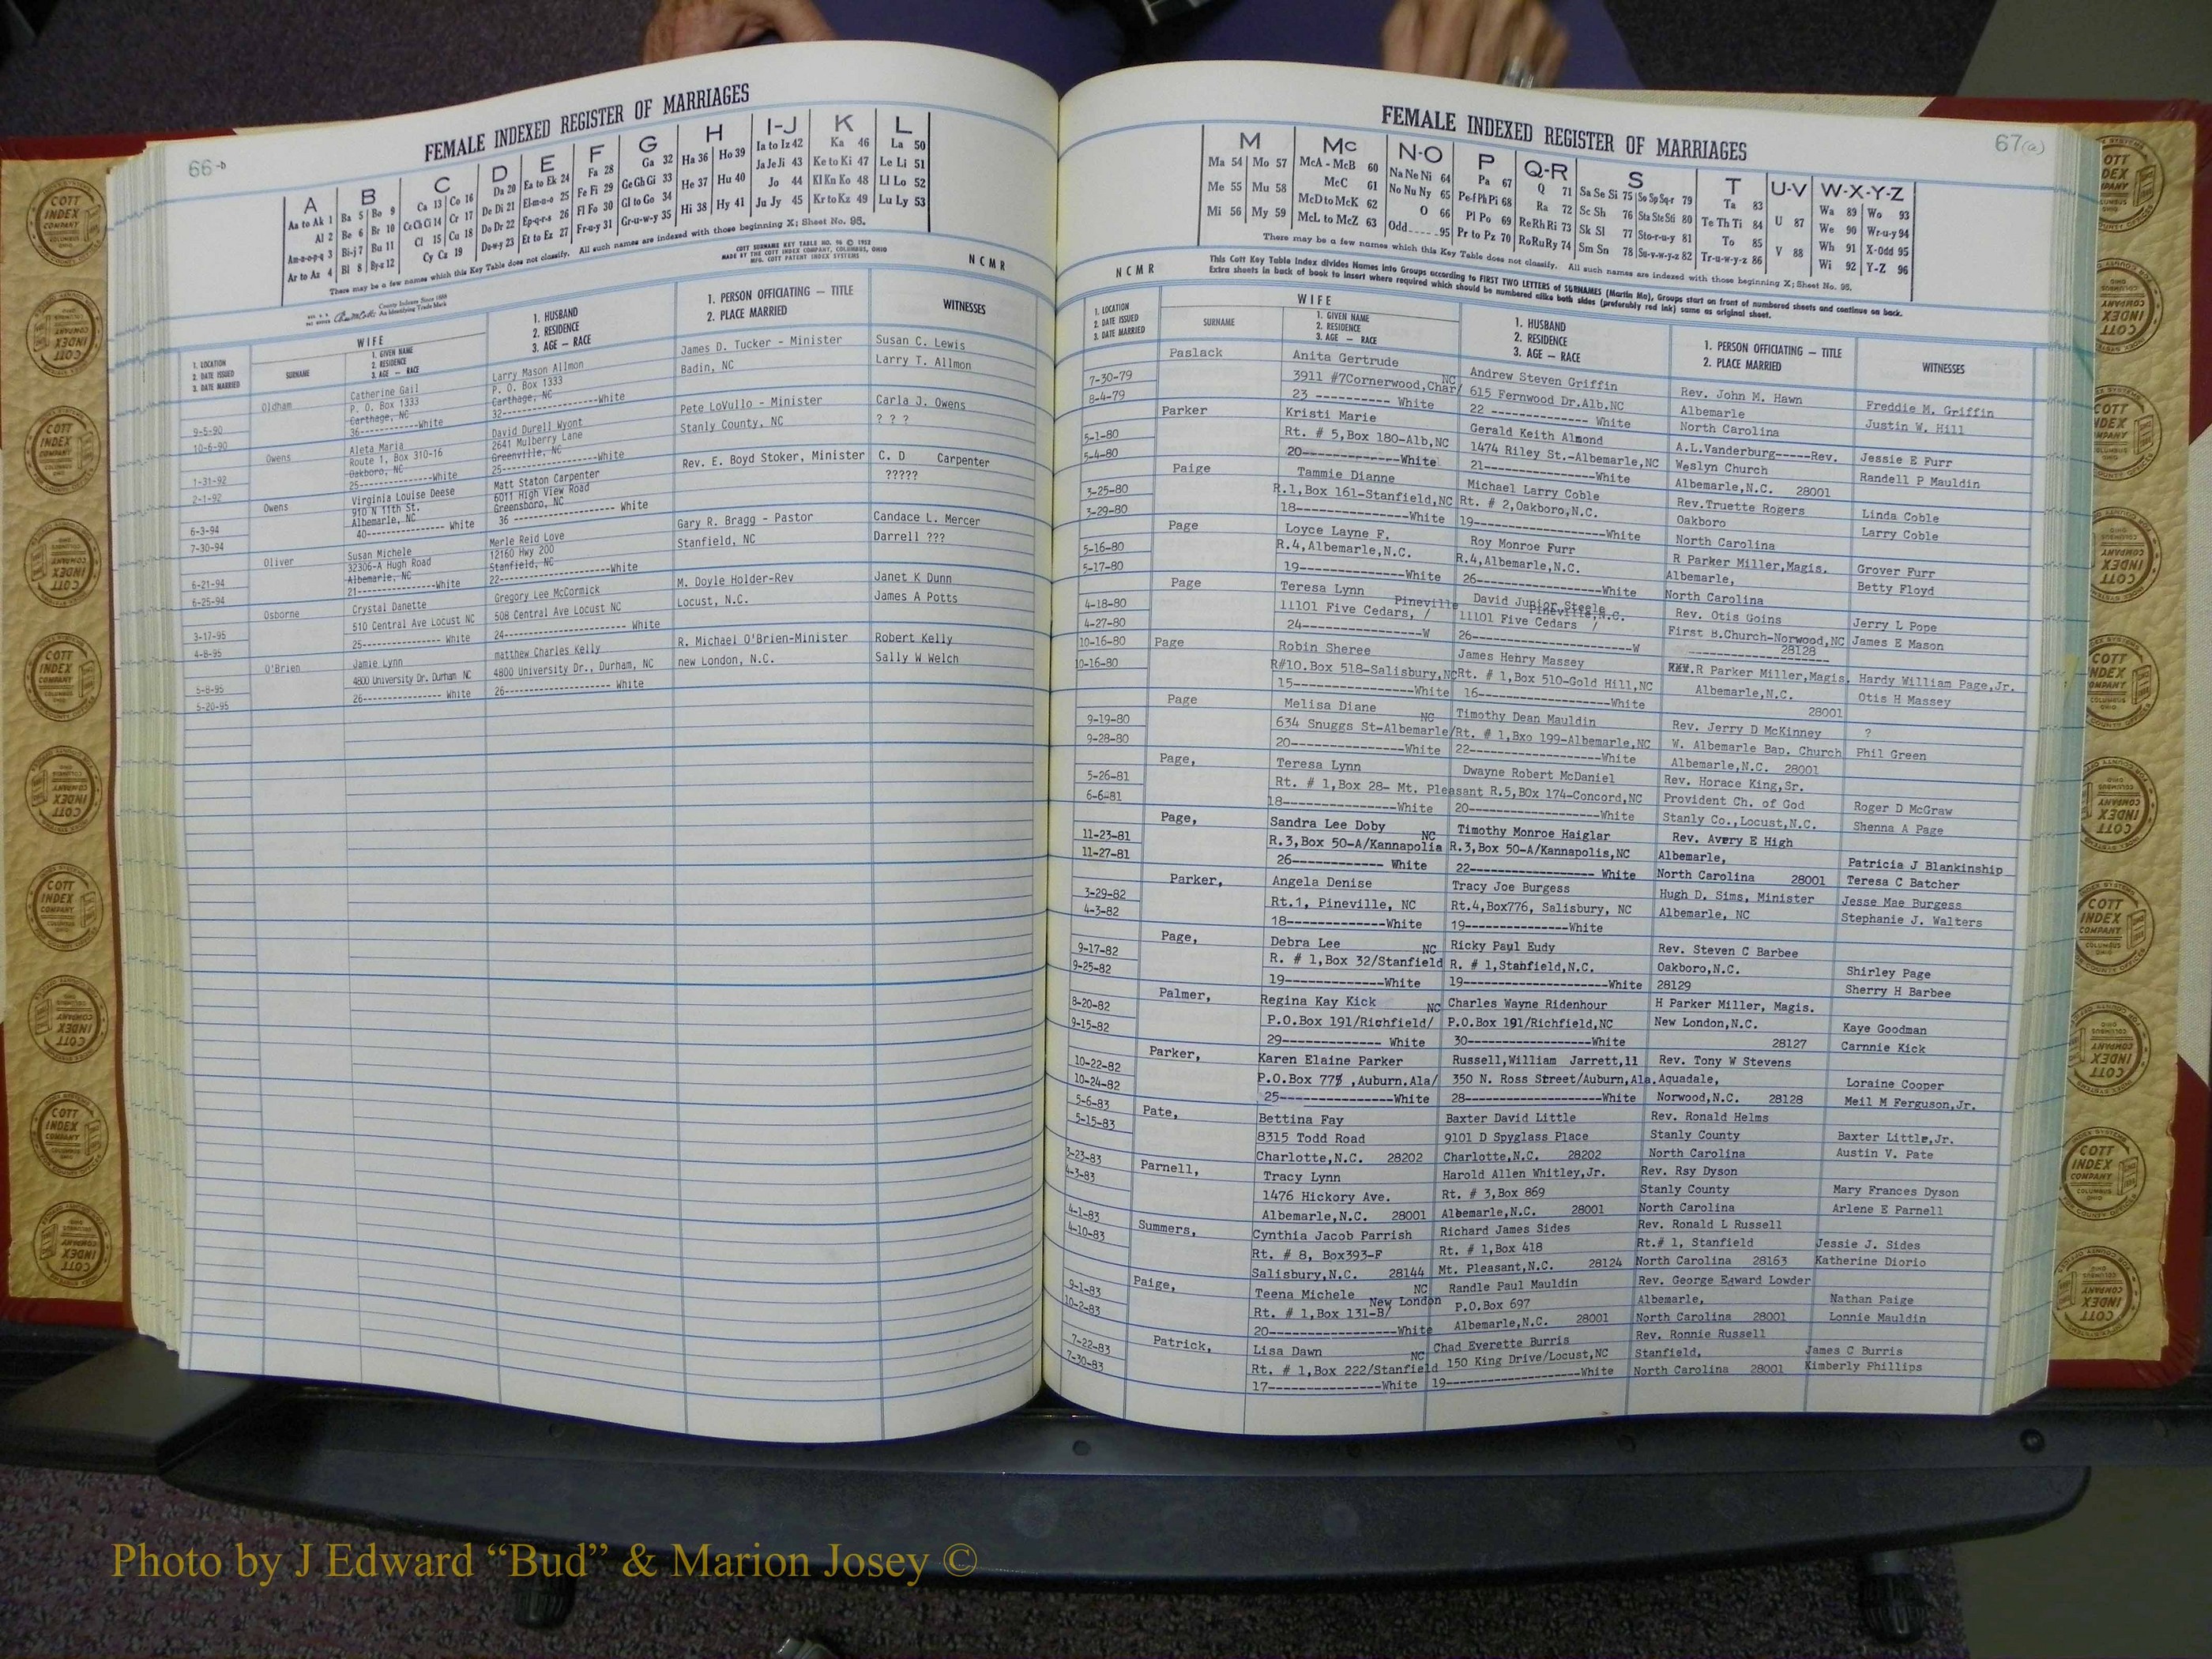 66-b
FEMALE INDEXED REGISTER OF MARRIAGES
A B C D E F G H I-J K L
Aa to Ak 1 Ba 5 Bo 9 Ca 13 Co 16 Da 20 Ea to Ek 24 Fa 28 Ga 32 Ha 36 Ho 39 Ia to Iz 42 Ka 46 La 50
Al 2 Be 6 Br 10 Ce Ch Ci 14 Cr 17 De Di 21 El-m-n-o 25 Fe Fi 29 Ge Gh Gi 33 He 37 Hu 40 Ja Je Ji 43 Ke to Ki 47 Le Li 51
Am-n-o-p-q 3 Bi-j 7 Bu 11 Cl 15 Cu 18 Do Dr 22 Ep-q-r-s 26 Fl Fo 30 Gl to Go 34 Hi 38 Hy 41 Jo 44 Kl Kn Ko 48 Ll Lo 52
Ar to Az 4 Bl 8 By-z 12 Cy Cz 19 Du-w-y 23 Et to Ez 27 Fr-u-y 31 Gr-u-w-y 35 Ju Jy 45 Kr to Kz 49 Lu Ly 53
There may be a few names which this Key Table does not classify. All such names are indexed with those beginning X; Sheet No. 95.
COTT SURNAME KEY TABLE NO. 96 © 1952
MADE BY THE COTT INDEX COMPANY, COLUMBUS, OHIO
MFG. COTT PATENT INDEX SYSTEMS
County Indexes Since 1888
An Identifying Trade Mark
N C M R
1. LOCATION
2. DATE ISSUED
3. DATE MARRIED
WIFE
SURNAME
1. GIVEN NAME
2. RESIDENCE
3. AGE — RACE
1. HUSBAND
2. RESIDENCE
3. AGE — RACE
1. PERSON OFFICIATING — TITLE
2. PLACE MARRIED
WITNESSES
Oldham Catherine Gail Larry Mason Allmon James D. Tucker - Minister Susan C. Lewis
P. O. Box 1333 P. O. Box 1333 Badin, NC Larry T. Allmon
9-5-90 Carthage, NC Carthage, NC
10-6-90 36------------White 32------------------White
Owens Aleta Maria David Durell Wyont Pete LoVullo - Minister Carla J. Owens
Route 1, Box 310-16 2641 Mulberry Lane Stanly County, NC ? ? ?
1-31-92 Oakboro, NC Greenville, NC
2-1-92 25--------------White 25-----------------White
Owens Virginia Louise Deese Matt Staton Carpenter Rev. E. Boyd Stoker, Minister C. D Carpenter
910 N 11th St. 6011 High View Road ?????
6-3-94 Albemarle, NC Greensboro, NC
7-30-94 40----------- White 36 ------------------ White
Oliver Susan Michele Merle Reid Love Gary R. Bragg - Pastor Candace L. Mercer
32306-A Hugh Road 12160 Hwy 200 Stanfield, NC Darrell ???
6-21-94 Albemarle, NC Stanfield, NC
6-25-94 21--------------White 22-------------------White
Osborne Crystal Danette Gregory Lee McCormick M. Doyle Holder-Rev Janet K Dunn
510 Central Ave Locust NC 508 Central Ave Locust NC Locust, N.C. James A Potts
3-17-95 25-------------- White 24-------------------- White
4-8-95
O'Brien Jamie Lynn matthew Charles Kelly R. Michael O'Brien-Minister Robert Kelly
4800 University Dr. Durham NC 4800 University Dr., Durham, NC new London, N.C. Sally W Welch
5-8-95 26------------- White 26------------------ White
5-20-95
67(a)
FEMALE INDEXED REGISTER OF MARRIAGES
M Mc N-O P Q-R S T U-V W-X-Y-Z
Ma 54 Mo 57 McA - McB 60 Na Ne Ni 64 Pa 67 Q 71 Sa Se Si 75 So Sp Sq-r 79 Ta 83 Wa 89 Wo 93
Me 55 Mu 58 McC 61 No Nu Ny 65 Pe-f Ph Pi 68 Ra 72 Sc Sh 76 Sta Ste Sti 80 Te Th Ti 84 U 87 We 90 Wr-u-y 94
Mi 56 My 59 McD to McK 62 O 66 Pl Po 69 Re Rh Ri 73 Sk Sl 77 Sto-r-u-y 81 To 85 Wh 91 X-Odd 95
McL to McZ 63 Odd.....95 Pr to Pz 70 Ro Ru Ry 74 Sm Sn 78 Su-v-w-y-z 82 Tr-u-w-y-z 86 V 88 Wi 92 Y-Z 96
There may be a few names which this Key Table does not classify. All such names are indexed with those beginning X; Sheet No. 95.
This Cott Key Table Index divides Names into Groups according to FIRST TWO LETTERS of SURNAMES (Martin Ma), Groups start on front of numbered sheets and continue on back.
Extra sheets in back of book to insert where required which should be numbered alike both sides (preferably red ink) same as original sheet.
N C M R
1. LOCATION
2. DATE ISSUED
3. DATE MARRIED
WIFE
SURNAME
1. GIVEN NAME
2. RESIDENCE
3. AGE — RACE
1. HUSBAND
2. RESIDENCE
3. AGE — RACE
1. PERSON OFFICIATING — TITLE
2. PLACE MARRIED
WITNESSES
Paslack Anita Gertrude Andrew Steven Griffin Rev. John M. Hawn Freddie M. Griffin
7-30-79 3911 #7Cornerwood,Char/ NC 615 Fernwood Dr.Alb,NC Albemarle Justin W. Hill
8-4-79 23 ---------- White 22 ------------- White North Carolina
Parker Kristi Marie Gerald Keith Almond A.L.Vanderburg-----Rev. Jessie E Furr
5-1-80 Rt. # 5,Box 180-Alb,NC 1474 Riley St.-Albemarle,NC Weslyn Church Randell P Mauldin
5-4-80 20-------------White 21---------------White Albemarle,N.C. 28001
Paige Tammie Dianne Michael Larry Coble Rev.Truette Rogers Linda Coble
3-25-80 R.1,Box 161-Stanfield,NC Rt. # 2,Oakboro,N.C. Oakboro Larry Coble
3-29-80 18---------------White 19---------------White North Carolina
Page Loyce Layne F. Roy Monroe Furr R Parker Miller,Magis. Grover Furr
5-16-80 R.4,Albemarle,N.C. R.4,Albemarle,N.C. Albemarle, Betty Floyd
5-17-80 19--------------White 26----------------White North Carolina
Page Teresa Lynn David Junior Steele Rev. Otis Goins Jerry L Pope
4-18-80 11101 Five Cedars, / Pineville 11101 Five Cedars / Pineville,N.C. First B.Church-Norwood,NC James E Mason
4-27-80 24---------------W 26-----------------W 28128
10-16-80 Page Robin Sheree James Henry Massey R Parker Miller,Magis. Hardy William Page,Jr.
10-16-80 R#10.Box 518-Salisbury,NC Rt. # 1,Box 510-Gold Hill,NC Albemarle,N.C. Otis H Massey
15---------------White 16---------------White 28001
Page Melisa Diane Timothy Dean Mauldin Rev. Jerry D McKinney ?
9-19-80 634 Snuggs St-Albemarle/ NC Rt. # 1,Bxo 199-Albemarle,NC W. Albemarle Bap. Church Phil Green
9-28-80 20---------------White 22---------------White Albemarle,N.C. 28001
Page, Teresa Lynn Dwayne Robert McDaniel Rev. Horace King,Sr. Roger D McGraw
5-26-81 Rt. # 1,Box 28- Mt. Pleasant R.5,BOx 174-Concord,NC Provident Ch. of God Shenna A Page
6-6-81 18---------------White 20---------------White Stanly Co.,Locust,N.C.
Page, Sandra Lee Doby Timothy Monroe Haiglar Rev. Avery E High Patricia J Blankinship
11-23-81 R.3,Box 50-A/Kannapolia NC R.3,Box 50-A/Kannapolis,NC Albemarle, Teresa C Batcher
11-27-81 26------------ White 22------------- White North Carolina 28001
Parker, Angela Denise Tracy Joe Burgess Hugh D. Sims, Minister Jesse Mae Burgess
3-29-82 Rt.1, Pineville, NC Rt.4,Box776, Salisbury, NC Albemarle, NC Stephanie J. Walters
4-3-82 18-------------White 19---------------White
Page, Debra Lee NC Ricky Paul Eudy Rev. Steven C Barbee Shirley Page
9-17-82 R. # 1,Box 32/Stanfield R. # 1,Stanfield,N.C. Oakboro,N.C. Sherry H Barbee
9-25-82 19-------------White 19------------------White 28129
Palmer, Regina Kay Kick NC Charles Wayne Ridenhour H Parker Miller, Magis. Kaye Goodman
8-20-82 P.O.Box 191/Richfield/ P.O.Box 191/Richfield,NC New London,N.C. Carnnie Kick
9-15-82 29------------- White 30-----------------White 28127
Parker, Karen Elaine Parker Russell,William Jarrett,11 Rev. Tony W Stevens Loraine Cooper
10-22-82 P.O.Box 778 ,Auburn.Ala/ 350 N. Ross Street/Auburn,Ala. Aquadale, Meil M Ferguson,Jr.
10-24-82 25---------------White 28------------------White Norwood,N.C. 28128
5-6-83 Pate, Bettina Fay Baxter David Little Rev. Ronald Helms Baxter Little,Jr.
5-15-83 8315 Todd Road 9101 D Spyglass Place Stanly County Austin V. Pate
Charlotte,N.C. 28202 Charlotte,N.C. 28202 North Carolina
3-23-83 Parnell, Tracy Lynn Harold Allen Whitley,Jr. Rev. Ray Dyson Mary Frances Dyson
4-3-83 1476 Hickory Ave. Rt. # 3,Box 869 Stanly County Arlene E Parnell
Albemarle,N.C. 28001 Albemarle,N.C. 28001 North Carolina
4-1-83 Summers, Cynthia Jacob Parrish Richard James Sides Rev. Ronald L Russell Jessie J. Sides
4-10-83 Rt. # 8, Box393-F Rt. # 1,Box 418 Rt.# 1, Stanfield Katherine Diorio
Salisbury,N.C. 28144 Mt. Pleasant,N.C. 28124 North Carolina 28163
9-1-83 Paige, Teena Michele NC Randle Paul Mauldin Rev. George Edward Lowder Nathan Paige
10-2-83 Rt. # 1,Box 131-B/ New London P.O.Box 697 Albemarle, Lonnie Mauldin
20-----------------White Albemarle,N.C. 28001 North Carolina 28001
7-22-83 Patrick, Lisa Dawn NC Chad Everette Burris Rev. Ronnie Russell James C Burris
7-30-83 Rt. # 1,Box 222/Stanfield 150 King Drive/Locust,NC Stanfield, Kimberly Phillips
17---------------White 19-----------------White North Carolina 28001
COTT INDEX COMPANY COLUMBUS OHIO
Photo by J Edward “Bud” & Marion Josey ©